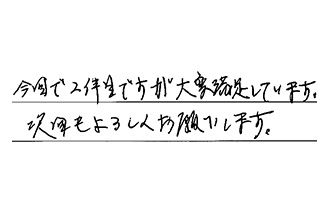 今回で2件目ですが大変満足しています。
次回もよろしくお願いします。